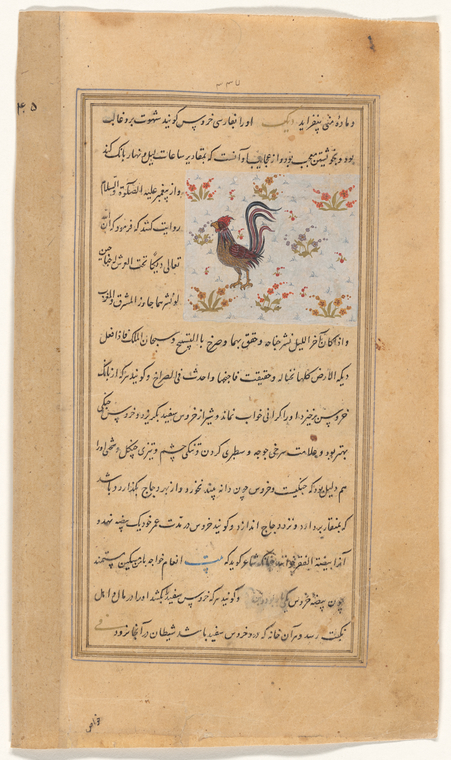 ۳۳۷
۴۵
و ماده منی بیفزاید دیک او را بفارسی خروس گویند شهوت برو غالب
بود و بخویشتن معجب بود و از عجایبها آنست که بمقادیر ساعات لیل و نهار بانک کند
و از پیغمبر علیه الصلوة و السلام
روایت کنند که فرمود که ان
تعالی دیکا تحت العرش له جناحین
لو نشرهما جاوز المشرق و المغرب
و اذا کان آخر اللیل نشر جناحه و خفق بهما و صرخ بالتسبیح و سبحان الملک فاذا فعل
دیکة الارض کلها و حقیقت و گویند هر که از بانک
خروس برخیزد او را کرانی خواب نماند و شیر از خروس سفید بگریزد و خروس جنگی
بهتر بود و علامت سرخی جوجه و سطبری کردن و تنکی چشم و تیزی چنکل
هم دلیل بود که جنگیست و خروس چون دانه بیند نخورد و از بهر دجاج بگذارد و باشد
که بمنقار بردارد و نزد دجاج اندازد و گویند خروس در مدت عمر خود یک بیضه نهد و
آنرا بیضة العقر خوانند چنانک شاعر گوید که بیت انعام خواجه با من مسکین مستمند
چون بیضه خروس و گویند هر که خروس سفید را بکشد او را در مال و اهل
نکبت رسد و هر آن خانه که درو خروس سفید باشد شیطان در آنجا نرود
خواص